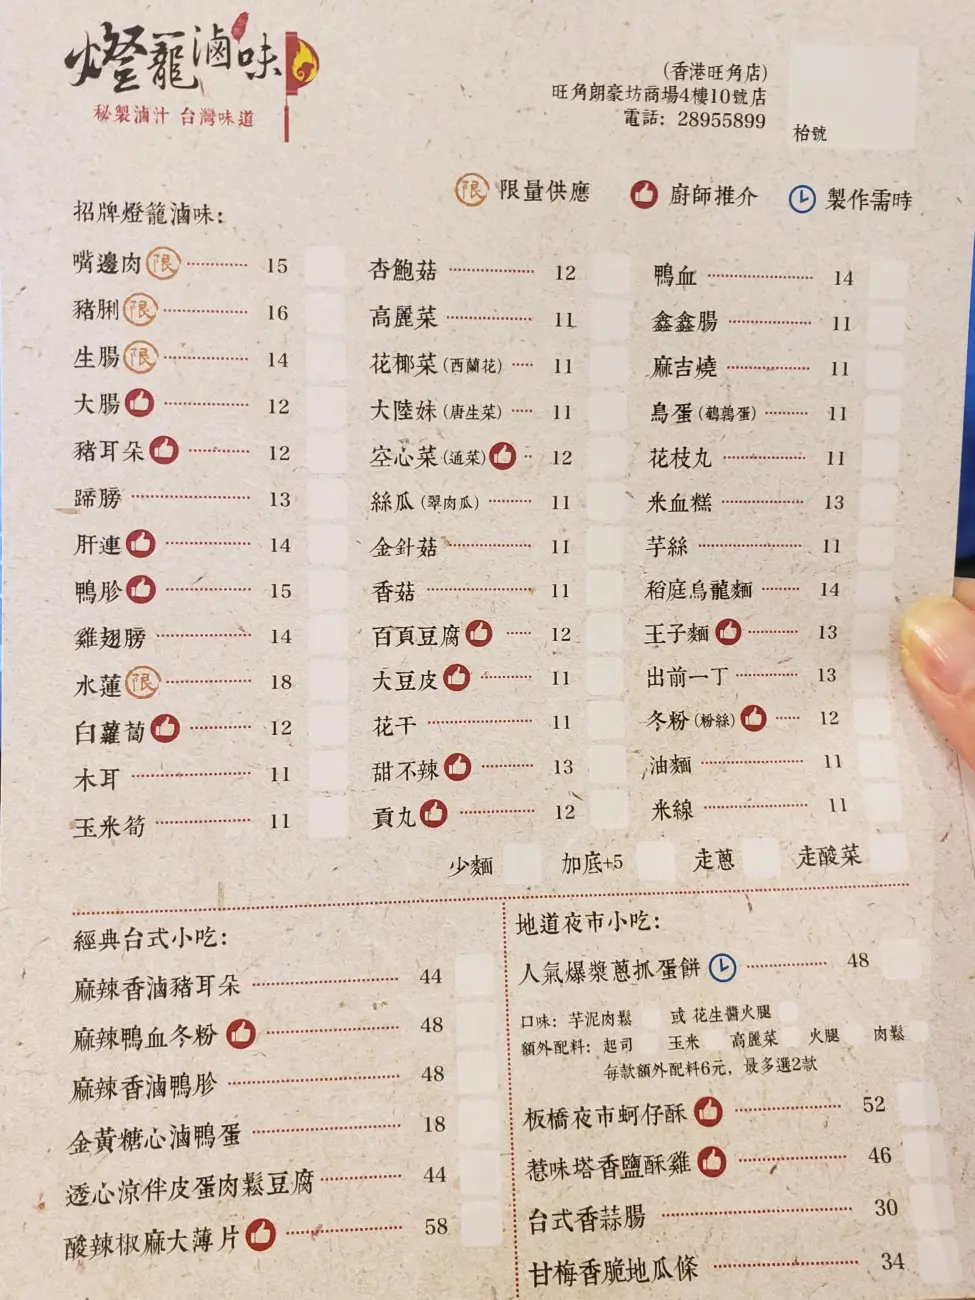 燈籠滷味
秘製滷汁 台灣味道
(香港旺角店)
旺角朗豪坊商場4樓10號店
電話: 28955899
枱號
限 限量供應 廚師推介 製作需時
招牌燈籠滷味:
嘴邊肉 限 15
豬脷 限 16
生腸 限 14
大腸 12
豬耳朵 12
蹄膀 13
肝連 14
鴨胗 15
雞翅膀 14
水蓮 限 18
白蘿蔔 12
木耳 11
玉米筍 11
杏鮑菇 12
高麗菜 11
花椰菜 (西蘭花) 11
大陸妹 (唐生菜) 11
空心菜 (通菜) 12
絲瓜 (翠肉瓜) 11
金針菇 11
香菇 11
百頁豆腐 12
大豆皮 11
花干 11
甜不辣 13
貢丸 12
鴨血 14
鑫鑫腸 11
麻吉燒 11
鳥蛋 (鵪鶉蛋) 11
花枝丸 11
米血糕 13
芋絲 11
稻庭烏龍麵 14
王子麵 13
出前一丁 13
冬粉 (粉絲) 12
油麵 11
米線 11
少麵 加底+5 走蔥 走酸菜
經典台式小吃:
麻辣香滷豬耳朵 44
麻辣鴨血冬粉 48
麻辣香滷鴨胗 48
金黃糖心滷鴨蛋 18
透心涼伴皮蛋肉鬆豆腐 44
酸辣椒麻大薄片 58
地道夜市小吃:
人氣爆漿蔥抓蛋餅 48
口味: 芋泥肉鬆 或 花生醬火腿
額外配料: 起司 玉米 高麗菜 火腿 肉鬆
每款額外配料6元, 最多選2款
板橋夜市蚵仔酥 52
惹味塔香鹽酥雞 46
台式香蒜腸 30
甘梅香脆地瓜條 34